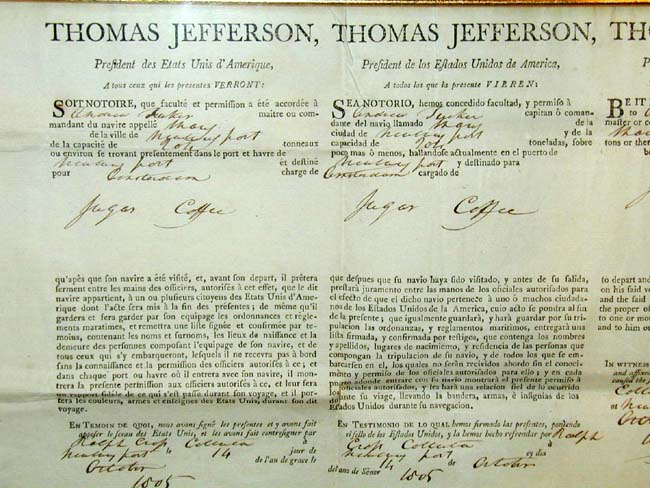 THOMAS JEFFERSON,
Président des Etats Unis d'Amerique,
A tous ceux qui les presentes VERRONT:
SOIT NOTOIRE, que faculté et permission a été accordée à
Andrew maitre ou com-
mandant du navire appellé Mary
de la ville de Newbury port
de la capacité de tonneaux
ou environ se trouvant presentement dans le port et havre de
Newbury port et destiné
pour Amsterdam charge de
Sugar Coffee
qu'apès que son navire a été visité, et, avant son depart, il prêtera
serment entre les mains des officiers, autorisés à cet effet, que le dit
navire appartient, à un ou plusieurs citoyens des Etats Unis d'Ame-
rique dont l'acte sera mis à la fin des présentes; de même qu'il
gardera et fera garder par son equipage les ordonnances et règle-
ments maratimes, et remettra une liste signée et confirmée par te-
moins, contenant les noms et surnoms, les lieux de naissance et la
demeure des personnes composant l'equipage de son navire, et de
tous ceux qui s'y embarqueront, lesquels il ne recevra pas à bord
sans la connaissance et la permission des officiers autorisés à ce; et
dans chaque port ou havre où il entrera avec son navire, il mon-
trera la presente permission aux officiers autorisés à ce, et leur fera
un rapport fidèle de ce qui s'est passé durant son voyage, et il por-
tera les couleurs, armes et enseignes des Etats Unis, durant son dit
voyage.
EN TEMOIN DE QUOI, nous avons signé les presentes et y avons fait
apposer le sceau des Etats Unis, et les avons fait contresigner par
Ralph Cross Collector
Newbury port 14 jour de
October de de l'an de grace le
1805
THOMAS JEFFERSON,
Presidente de los Estados Unidos de America,
A todos los que la presente VIEREN:
SEA NOTORIO, hemos concedido facultad, y permiso à
Andrew capitan ó coman-
dante del navio llamado Mary de la
ciudad de Newbury port y de la
capacidad de toneladas, sobre
poco mas ó menos, hallandose actualmente en el puerto de
Newbury port y destinado para
Amsterdam cargado de
Sugar Coffee
que despues que su navio haya sido visitado, y antes de su salida,
prestará juramento entre las manos de los oficiales autorisados para
el efecto de que el dicho navio pertenece à uno ó muchos ciudada-
nos de los Estados Unidos de la America, cuio acto se pondra al fin
de la presente; que igualmente guardará, y hará guardar por su tri-
pulacion las ordonanzas, y reglamentos maritimos, entregará una
lista firmada, y confirmada por testigos, que contenga los nombres
y apellidos, lugares de nacimiento, y residencia de las personas que
compongan la tripulacion de su navio, y de todos los que se em-
barcasen en el, los quales no serán recividos abordo sin el conoci-
miento y permiso de los oficiales autorisados para ello; y en cada
puerto adonde entrare con su navio mostrará el presente permiso à
oficiales autorisados, y les hará una relacion fiel de lo ocurrido
durante su viage, llevando la bandera, armas, è insignias de los
Estados Unidos durante su navegacion.
EN TESTIMONIO DE LO QUAL hemos firmado las presentes, poniendo
el sello de los Estados Unidos, y la hemos hecho refrendar por Ralph
Cross Collector
Newbury port oy dia
14 de October
del ans de Señor 1805
TH
BE IT
master or com
tons or there
to depart and
on his
and the said
the proper of
to one or mo
and to him
IN WITNESS
and affixed
caused the
Newbury
October